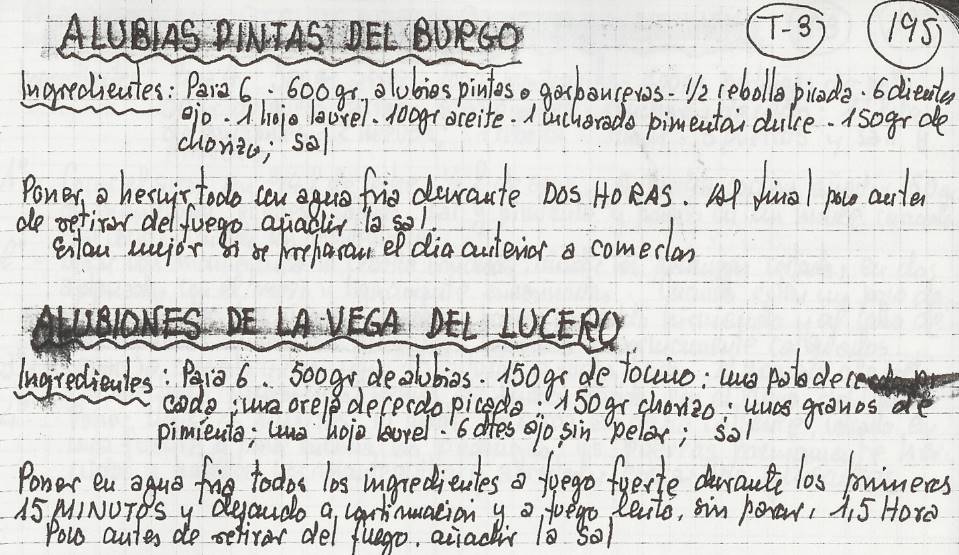 ALUBIAS PINTAS DEL BURGO T-3 195
Ingredientes: Para 6 - 600gr. alubias pintas o garbanceras - 1/2 cebolla picada - 6 dientes
ajo - 1 hoja laurel - 100gr aceite - 1 cucharada pimentón dulce - 150gr de
chorizo; sal
Poner a hervir todo con agua fria durante DOS HORAS. Al final poco antes
de retirar del fuego añadir la sal.
Estan mejor si se preparan el dia anterior a comerlas
ALUBIONES DE LA VEGA DEL LUCERO
Ingredientes: Para 6. 500gr de alubias - 150gr de tocino; una pata de cerdo pi
cada; una oreja de cerdo picada; 150gr chorizo; unos granos de
pimienta; una hoja laurel - 6 dtes ajo sin pelar; sal
Poner en agua fria todos los ingredientes a fuego fuerte durante los primeros
15 MINUTOS y dejando a continuacion y a fuego lento, sin parar, 1,5 Hora
Poco antes de retirar del fuego, añadir la sal